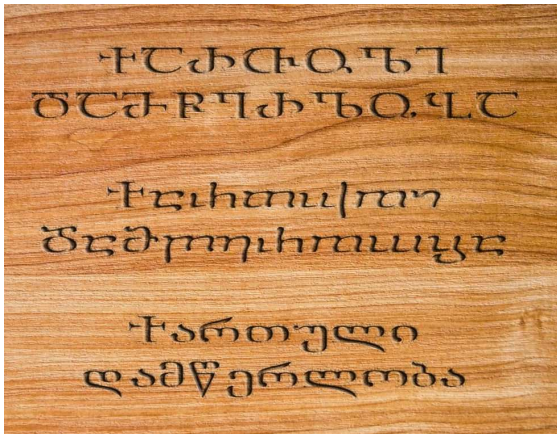 ႵႠႰႧႳႪႨ
ႣႠႫႼႤႰႪႭႡႠ
Ⴕⴀⴐⴇⴓⴊⴈ
Ⴃⴀⴋⴜⴄⴐⴊⴍⴁⴀ
ქართული
დამწერლობა